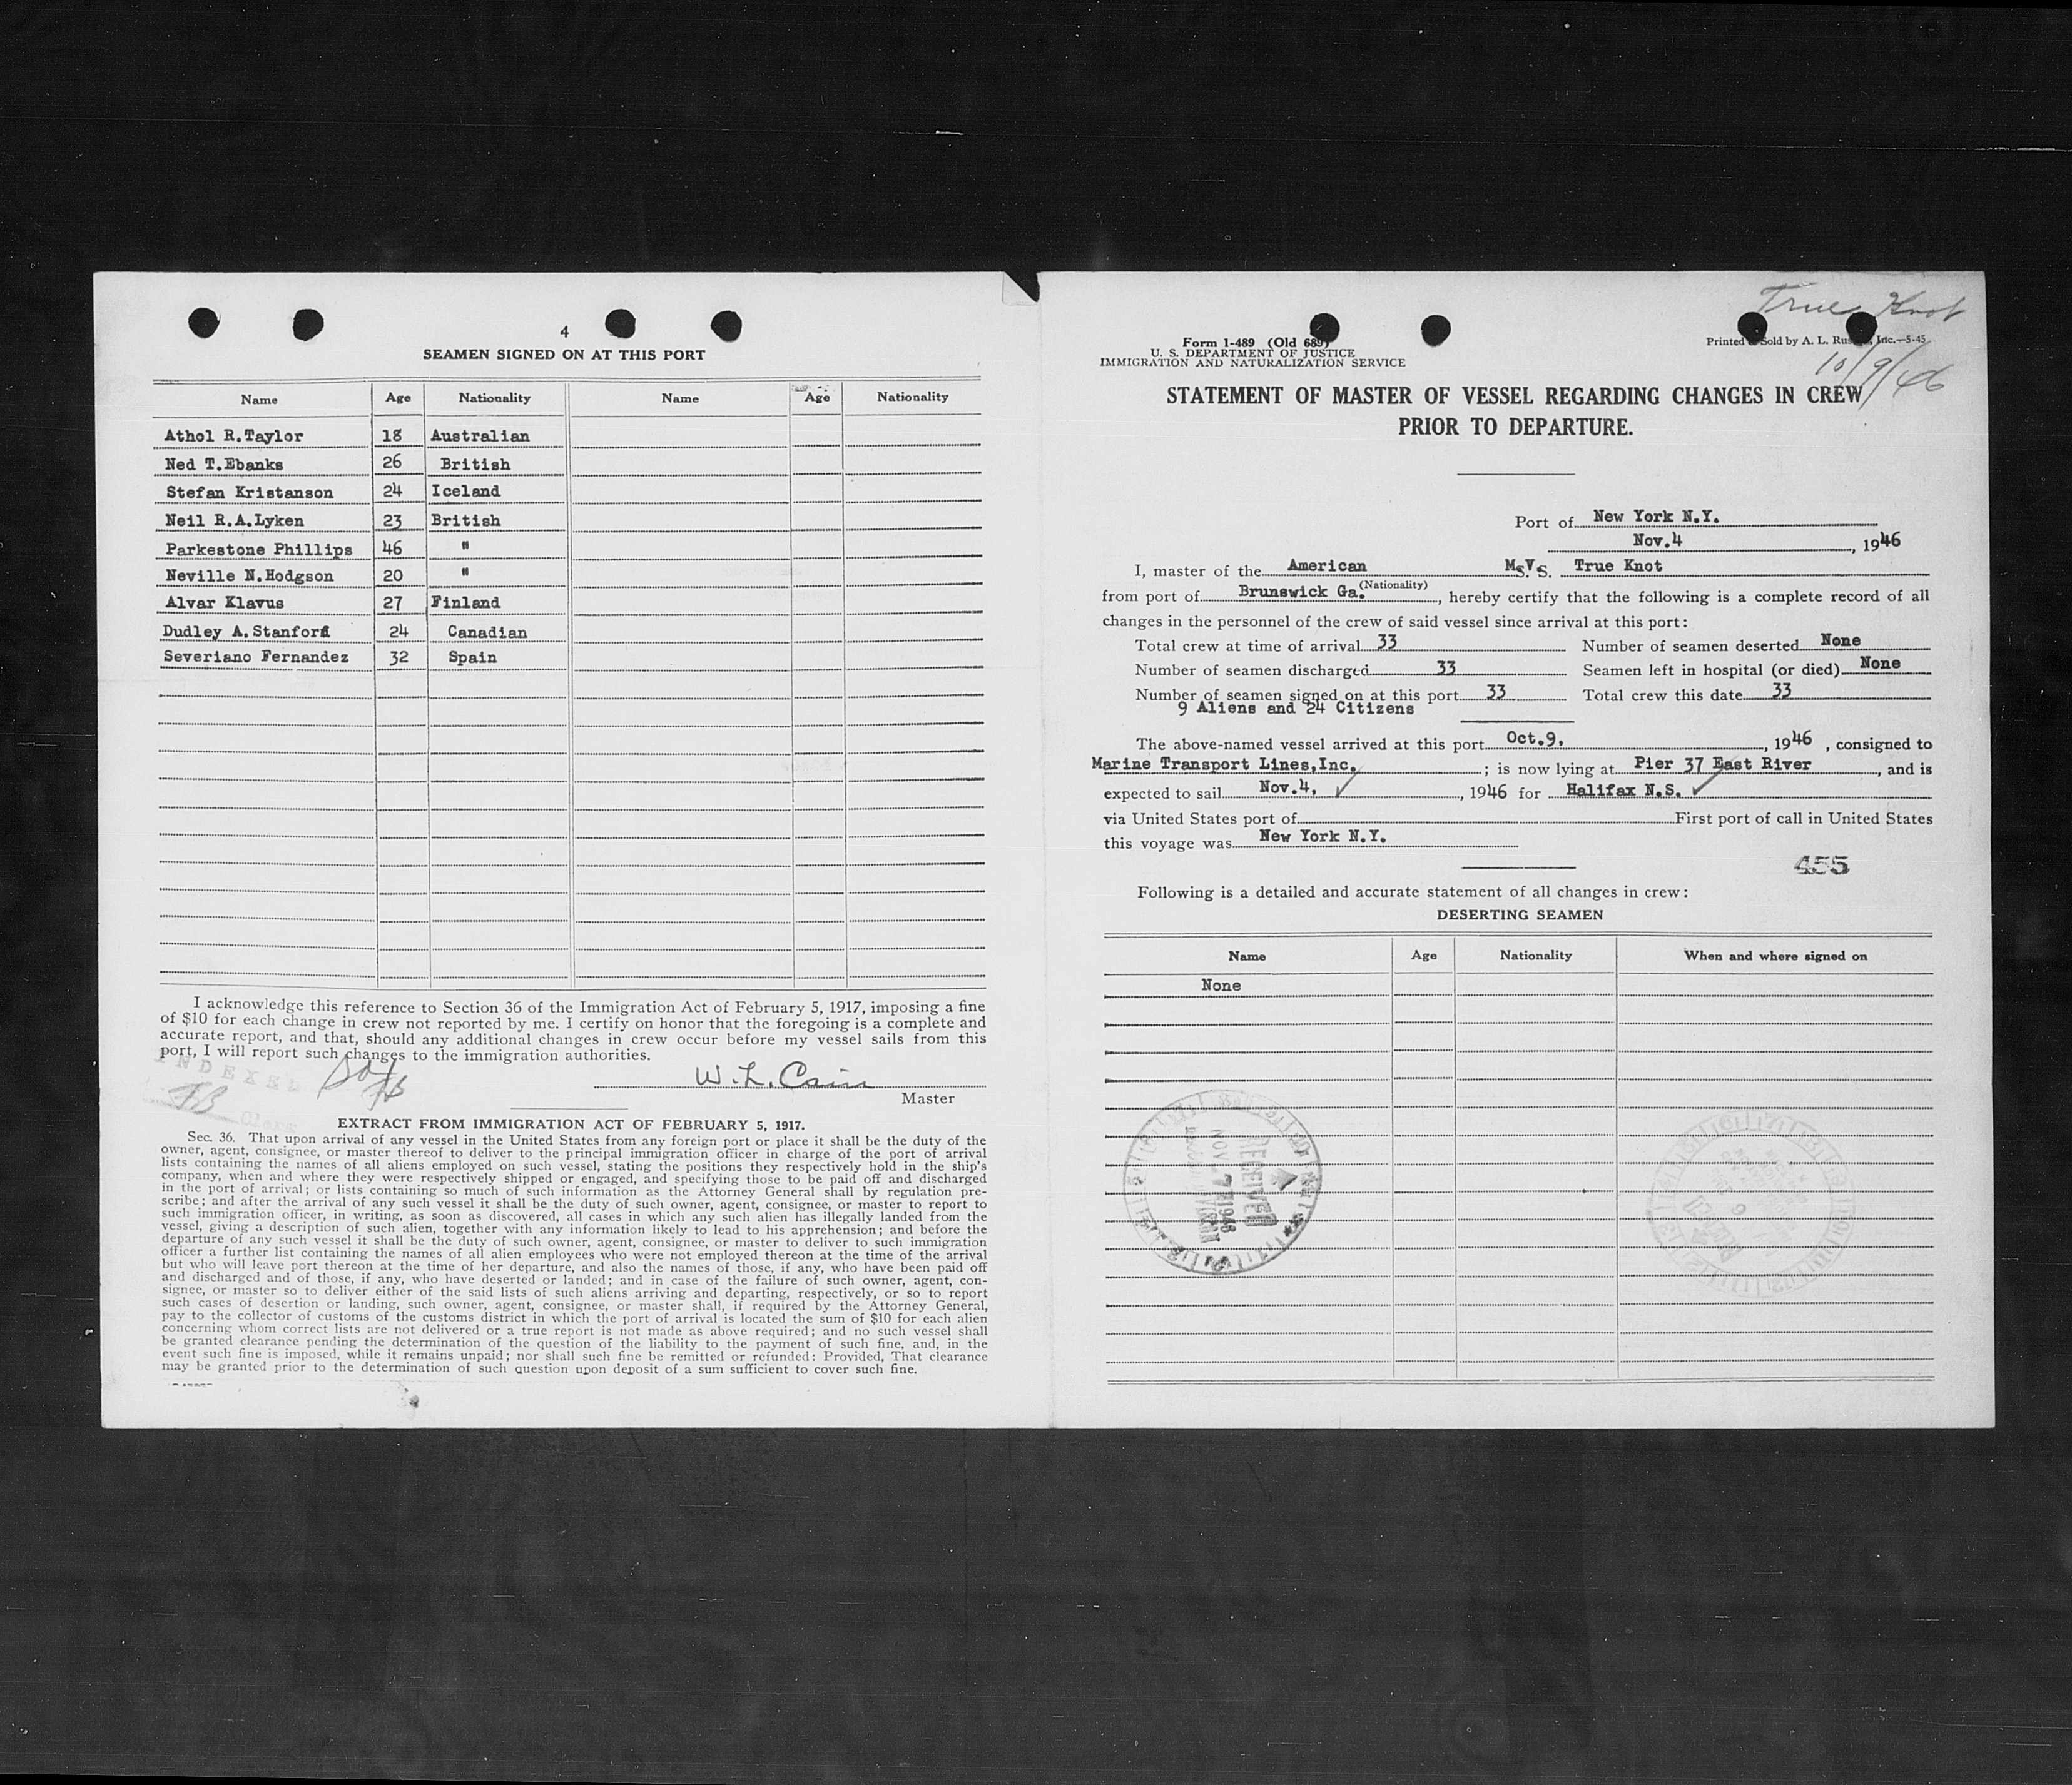 4
SEAMEN SIGNED ON AT THIS PORT
Name Age Nationality Name Age Nationality
Athol R.Taylor 18 Australian
Ned T.Ebanks 26 British
Stefan Kristanson 24 Iceland
Neil R.A.Lyken 23 British
Parkestone Phillips 46 "
Neville N.Hodgson 20 "
Alvar Klavus 27 Finland
Dudley A.Stanford 24 Canadian
Severiano Fernandez 32 Spain
I acknowledge this reference to Section 36 of the Immigration Act of February 5, 1917, imposing a fine
of $10 for each change in crew not reported by me. I certify on honor that the foregoing is a complete and
accurate report, and that, should any additional changes in crew occur before my vessel sails from this
port, I will report such changes to the immigration authorities.
INDEXED
W. L. Cain
Master
EXTRACT FROM IMMIGRATION ACT OF FEBRUARY 5, 1917.
Sec. 36. That upon arrival of any vessel in the United States from any foreign port or place it shall be the duty of the
owner, agent, consignee, or master thereof to deliver to the principal immigration officer in charge of the port of arrival
lists containing the names of all aliens employed on such vessel, stating the positions they respectively hold in the ship's
company, when and where they were respectively shipped or engaged, and specifying those to be paid off and discharged
in the port of arrival; or lists containing so much of such information as the Attorney General shall by regulation pre-
scribe; and after the arrival of any such vessel it shall be the duty of such owner, agent, consignee, or master to report to
such immigration officer, in writing, as soon as discovered, all cases in which any such alien has illegally landed from the
vessel, giving a description of such alien, together with any information likely to lead to his apprehension; and before the
departure of any such vessel it shall be the duty of such owner, agent, consignee, or master to deliver to such immigration
officer a further list containing the names of all alien employees who were not employed thereon at the time of the arrival
but who will leave port thereon at the time of her departure, and also the names of those, if any, who have been paid off
and discharged and of those, if any, who have deserted or landed; and in case of the failure of such owner, agent, con-
signee, or master so to deliver either of the said lists of such aliens arriving and departing, respectively, or so to report
such cases of desertion or landing, such owner, agent, consignee, or master shall, if required by the Attorney General,
pay to the collector of customs of the customs district in which the port of arrival is located the sum of $10 for each alien
concerning whom correct lists are not delivered or a true report is not made as above required; and no such vessel shall
be granted clearance pending the determination of the question of the liability to the payment of such fine, and, in the
event such fine is imposed, while it remains unpaid; nor shall such fine be remitted or refunded: Provided, That clearance
may be granted prior to the determination of such question upon deposit of a sum sufficient to cover such fine.
True Knot
10/9/46
Form 1-489 (Old 689)
U. S. DEPARTMENT OF JUSTICE
IMMIGRATION AND NATURALIZATION SERVICE
Printed Sold by A. L. Inc.—5-45
STATEMENT OF MASTER OF VESSEL REGARDING CHANGES IN CREW
PRIOR TO DEPARTURE.
Port of New York N.Y.
Nov.4, 1946
I, master of the American M.V.S. True Knot
(Nationality)
from port of Brunswick Ga., hereby certify that the following is a complete record of all
changes in the personnel of the crew of said vessel since arrival at this port:
Total crew at time of arrival 33 Number of seamen deserted None
Number of seamen discharged 33 Seamen left in hospital (or died) None
Number of seamen signed on at this port 33 Total crew this date 33
9 Aliens and 24 Citizens
The above-named vessel arrived at this port Oct.9, 1946, consigned to
Marine Transport Lines,Inc.; is now lying at Pier 37 East River, and is
expected to sail Nov.4, 1946 for Halifax N.S.
via United States port of First port of call in United States
this voyage was New York N.Y.
455
Following is a detailed and accurate statement of all changes in crew:
DESERTING SEAMEN
Name Age Nationality When and where signed on
None
RECEIVED
NOV 7 1946